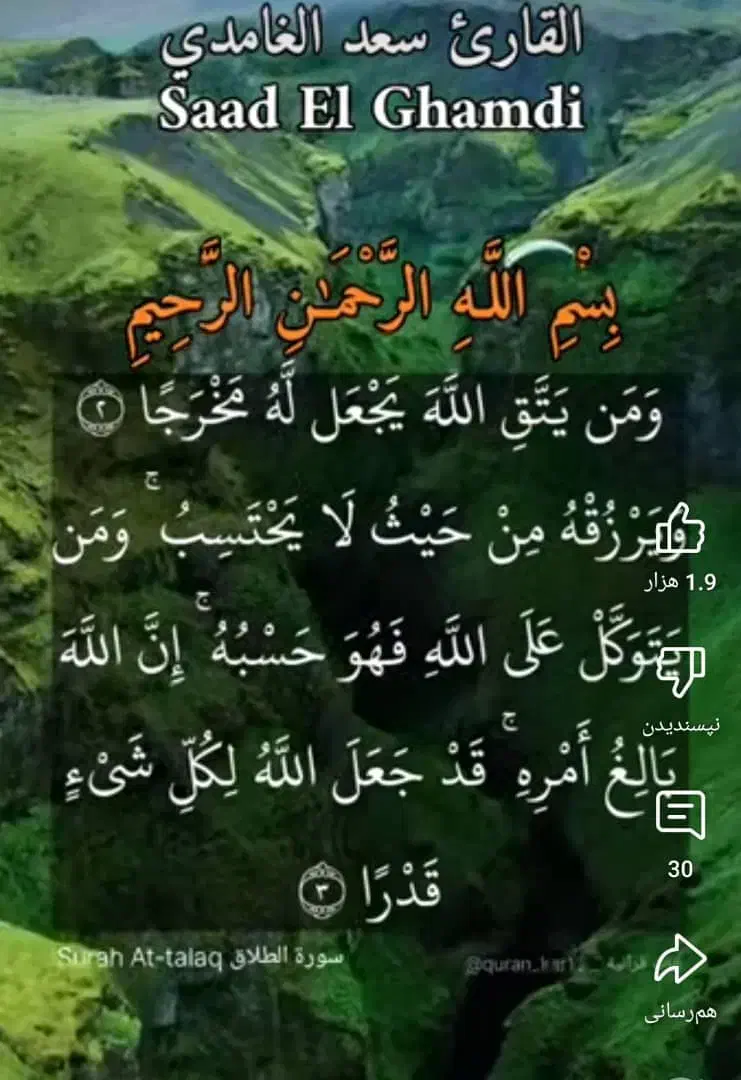 القارئ سعد الغامدي
Saad El Ghamdi
بِسْمِ اللَّهِ الرَّحْمَٰنِ الرَّحِيمِ
وَمَن يَتَّقِ اللَّهَ يَجْعَل لَّهُ مَخْرَجًا ٢
وَيَرْزُقْهُ مِنْ حَيْثُ لَا يَحْتَسِبُ ۚ وَمَن
يَتَوَكَّلْ عَلَى اللَّهِ فَهُوَ حَسْبُهُ ۚ إِنَّ اللَّهَ
بَالِغُ أَمْرِهِ ۚ قَدْ جَعَلَ اللَّهُ لِكُلِّ شَىْءٍ
قَدْرًا ٣
1.9 هزار
نپسندیدن
30
هم‌رسانی
Surah At-talaq سورة الطلاق
قرآنية